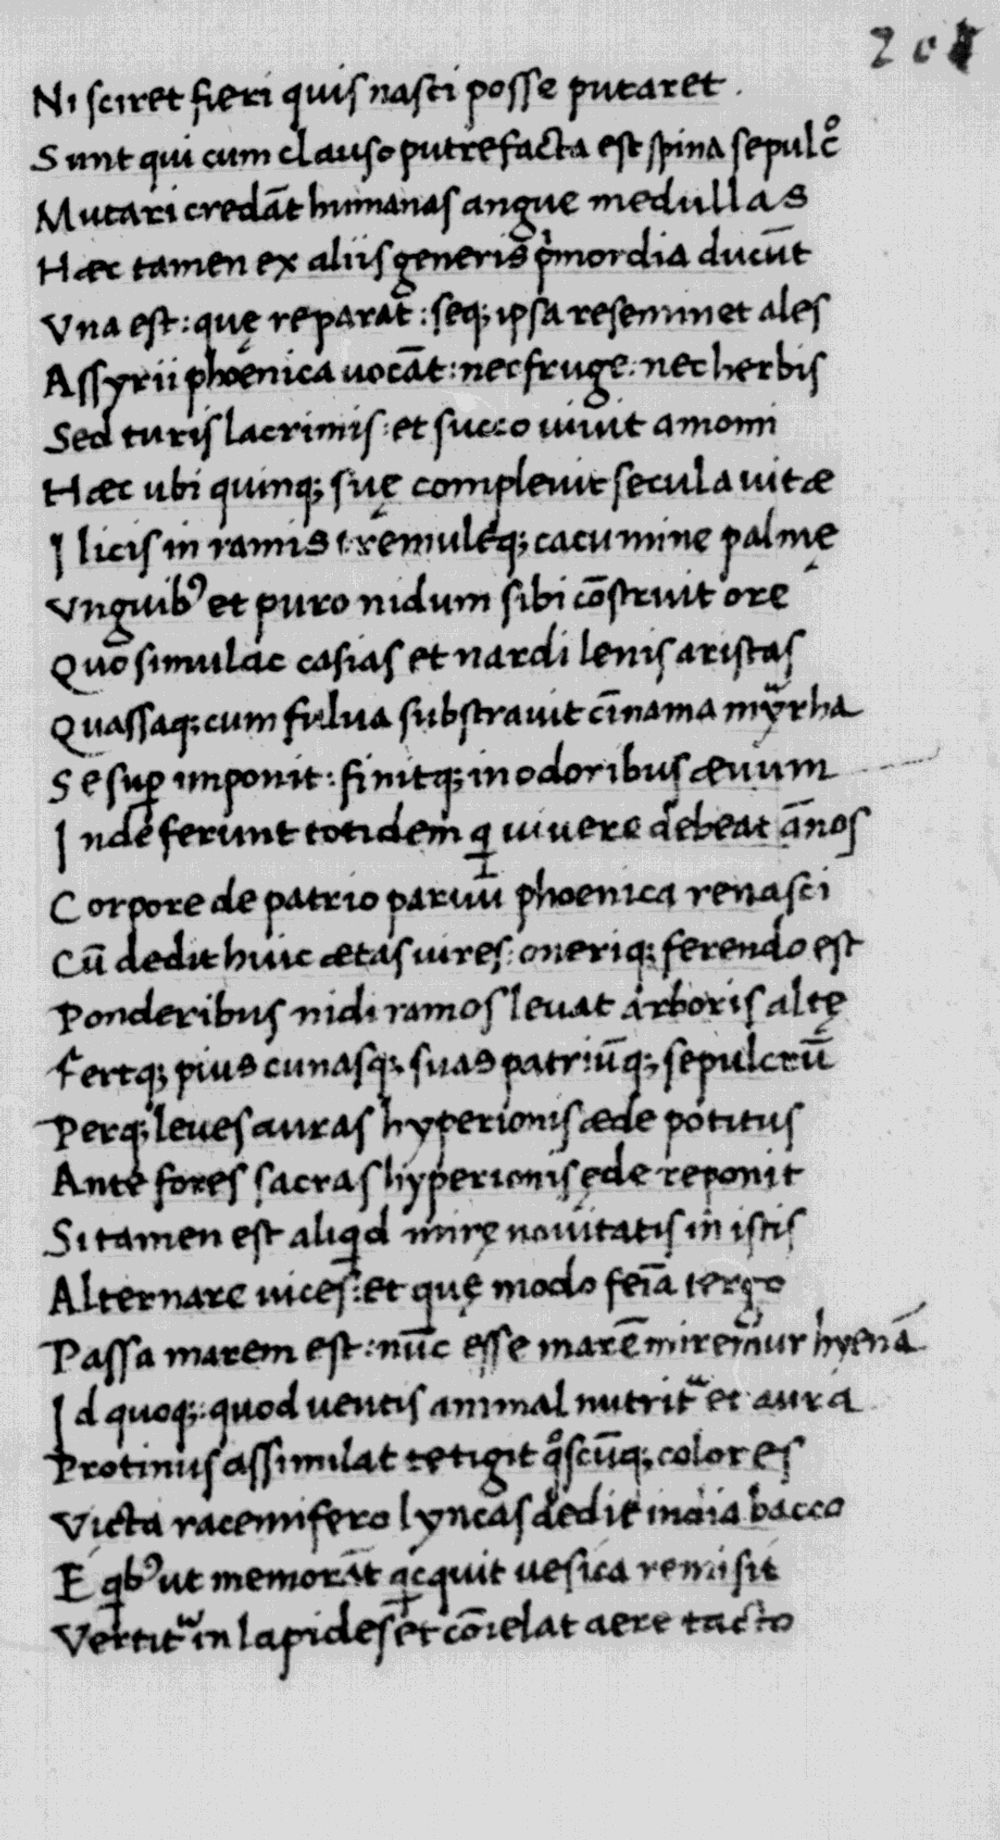 Ni sciret fieri quis nasci posse putaret.
Sunt qui cum clauso putrefacta est spina sepulcº
Mutari credāt humanas angue medullas
Hæc tamen ex aliis generis pͥmordia ducūt
Vna est: quę reparat: seq; ipsa reseminet ales
Assyrii phoenica uocāt: nec fruge: nec herbis
Sed turis lacrimis: et succo uiuit amomi
Hæc ubi quinq; suę compleuit secula uitæ
Ilicis in ramis tremulęq; cacumine palmę
Vnguibꝰ et puro nidum sibi cōstruit ore
Quo simulac casias et nardi lenis aristas
Quassaq; cum fulua substrauit cīnama myrha
Se suꝑ imponit: finitq; in odoribus æuum
Inde ferunt totidem q uiuere debeat ānos
Corpore de patrio paruū phoenica renasci
Cū dedit huic ætas uires: oneriq; ferendo est
Ponderibus nidi ramos leuat arboris altę
Fertq; pius cunasq; suas patriūq; sepulcrū
Perq; leues auras hyperionis æde potitus
Ante fores sacras hyperionis ęde reponit
Si tamen est aliqd mirę nouitatis in istis
Alternare uices: et quę modo feīa tergo
Passa marem est: nūc esse marē miremur hyenā
Id quoq;: quod uentis animal nutrit et aura
Protinus assimilat tetigit qͦscūq; colores
Victa racemifero lyncas dedit india bacco
E qbꝰ ut memorāt qcquit uesica remisit
Vertit in lapides et cōgelat aere tacto